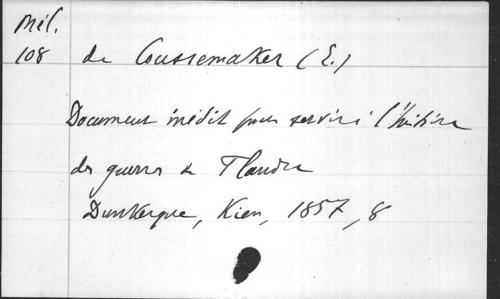 Mél.
108 de Coussemaker (E.)
Document inédit pour servir à l'histoire
des guerres de Flandre
Dunkerque, Kien, 1857, 8